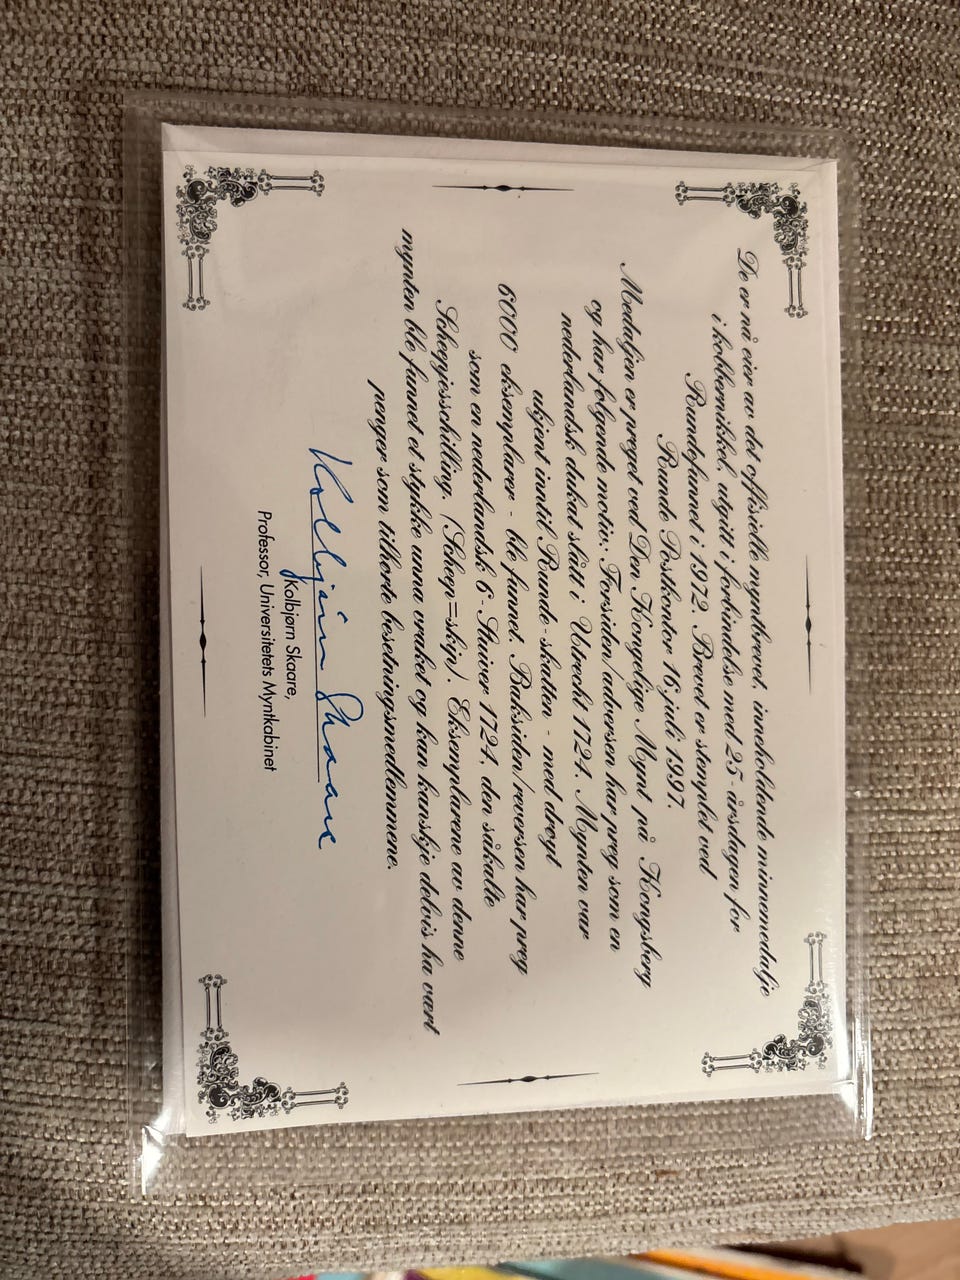 De er nå eier av det offisielle myntbrevet, inneholdende minnemedalje
i kobbernikkel, utgitt i forbindelse med 25-årsdagen for
Rundefunnet i 1972. Brevet er stemplet ved
Runde Postkontor 16. juli 1997.
Medaljen er preget ved Den Kongelige Mynt på Kongsberg
og har følgende motiv: Forsiden/adversen har preg som en
nederlandsk dukat slått i Utrecht 1724. Mynten var
ukjent inntil Runde-skatten - med drøyt
6000 eksemplarer - ble funnet. Baksiden/reversen har preg
som en nederlandsk 6-Stuiver 1724, den såkalte
Scheepjesschilling. (Scheep=skip). Eksemplarene av denne
mynten ble funnet et stykke unna vraket og kan kanskje delvis ha vært
penger som tilhørte besetningsmedlemmene.
Kolbjørn Skaare
Kolbjørn Skaare,
Professor, Universitetets Myntkabinet